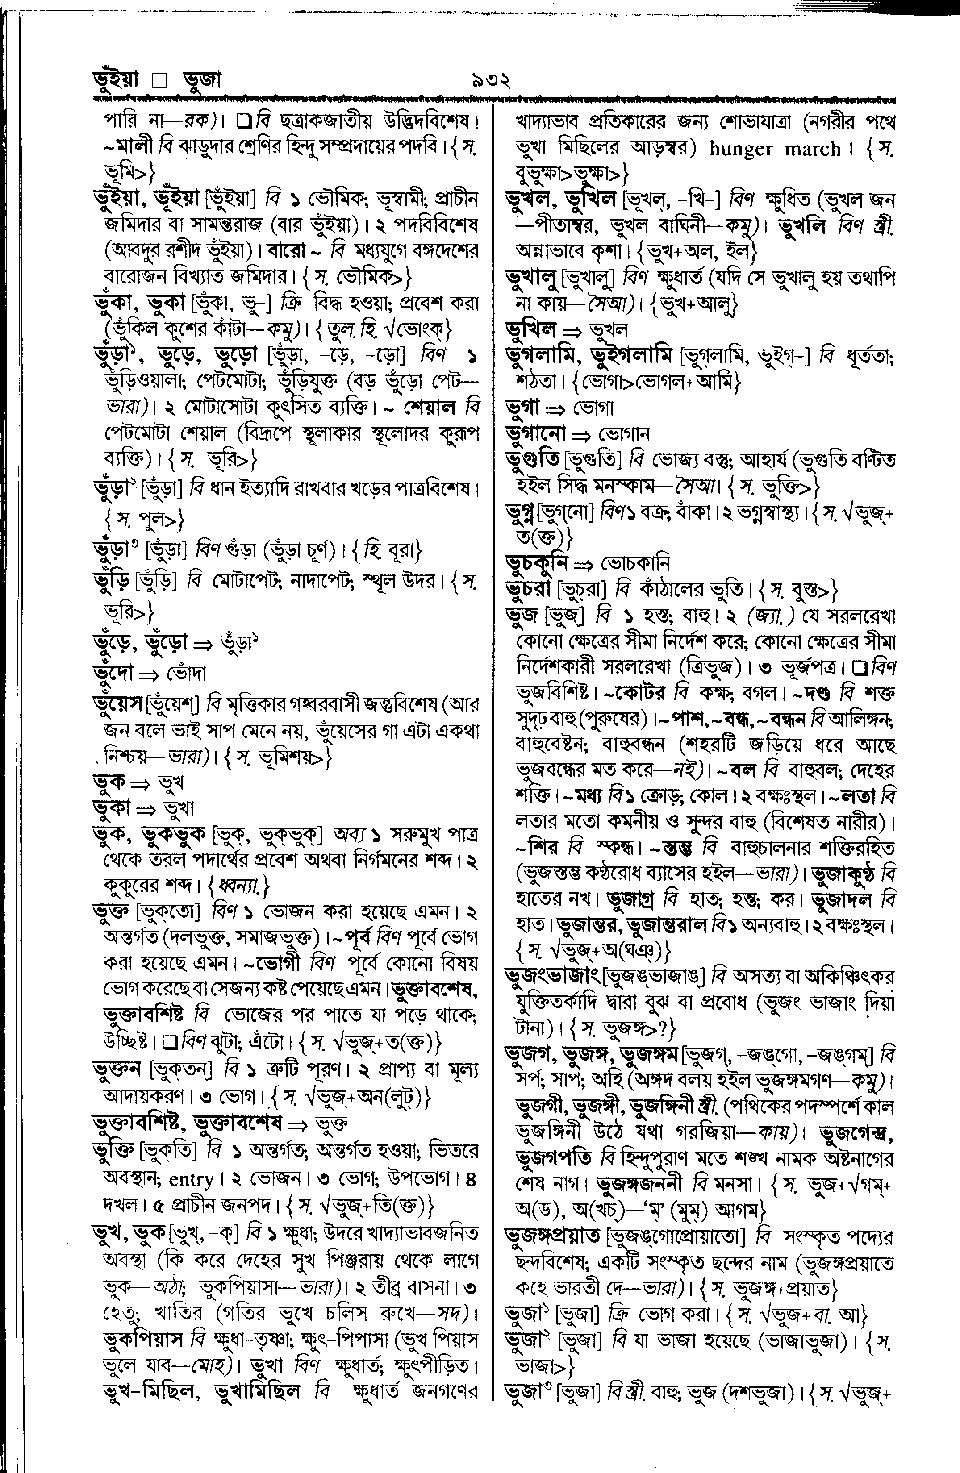 ভুঁইয়া □ ভুজা
৯৩২
পারি না—রক)। ❑বি ছত্রাকজাতীয় উদ্ভিদবিশেষ।
~মালী বি ঝাড়ুদার শ্রেণির হিন্দু সম্প্রদায়ের পদবি। {স.
ভূমি>}
ভুঁইয়া, ভূঁইয়া [ভুঁইয়া] বি ১ ভৌমিক; ভূস্বামী; প্রাচীন
জমিদার বা সামন্তরাজ (বার ভুঁইয়া)। ২ পদবিবিশেষ
(আবদুর রশীদ ভুঁইয়া)। বারো~ বি মধ্যযুগে বঙ্গদেশের
বারোজন বিখ্যাত জমিদার। {স. ভৌমিক>}
ভুঁকা, ভুকা [ভুঁকা, ভু-] ক্রি বিদ্ধ হওয়া; প্রবেশ করা
(ভুঁকিল কুশের কাঁটা—কমু)। {তুল. হি. √ভোংক্}
ভুঁড়া১, ভুড়ে, ভুড়ো [ভুঁড়া, -ড়ে, -ড়ো] বিণ ১
ভুঁড়িওয়ালা; পেটমোটা; ভুঁড়িযুক্ত (বড় ভুঁড়ো পেট—
ভারা)। ২ মোটাসোটা কুৎসিত ব্যক্তি। ~ শেয়াল বি
পেটমোটা শেয়াল (বিদ্রূপে স্থূলাকার স্থূলোদর কুরূপ
ব্যক্তি)। {স. ভূরি>}
ভুঁড়া২ [ভুঁড়া] বি ধান ইত্যাদি রাখবার খড়ের পাত্রবিশেষ।
{স. পুল>}
ভুঁড়া৩ [ভুঁড়া] বিণ গুঁড়া (ভুঁড়া চূর্ণ)। {হি. বূরা}
ভুঁড়ি [ভুঁড়ি] বি মোটাপেট; নাদাপেট; স্থূল উদর। {স.
ভূরি>}
ভুঁড়ে, ভুঁড়ো ⇒ ভুঁড়া১
ভুঁদো ⇒ ভোঁদা
ভুঁয়েস [ভুঁয়েশ্] বি মৃত্তিকার গহ্বরবাসী জন্তুবিশেষ (আর
জন বলে ভাই সাপ মেনে নয়, ভুঁয়েসের গা এটা একথা
নিশ্চয়—ভারা)। {স. ভূমিশয়>}
ভুক ⇒ ভুখ
ভুকা ⇒ ভুখা
ভুক, ভুকভুক [ভুক্, ভুক্‌ভুক্] অব্য ১ সরুমুখ পাত্র
থেকে তরল পদার্থের প্রবেশ অথবা নির্গমনের শব্দ। ২
কুকুরের শব্দ। {ধ্বন্যা.}
ভুক্ত [ভুক্‌তো] বিণ ১ ভোজন করা হয়েছে এমন। ২
অন্তর্গত (দলভুক্ত, সমাজভুক্ত)। ~পূর্ব বিণ পূর্বে ভোগ
করা হয়েছে এমন। ~ভোগী বিণ পূর্বে কোনো বিষয়
ভোগ করেছে বা সেজন্য কষ্ট পেয়েছে এমন। ভুক্তাবশেষ,
ভুক্তাবশিষ্ট বি ভোজের পর পাতে যা পড়ে থাকে;
উচ্ছিষ্ট। ❑বিণ ঝুটা; এঁটো। {স. √ভুজ্+ত(ক্ত)}
ভুক্তন [ভুক্‌তন্] বি ১ ত্রুটি পূরণ। ২ প্রাপ্য বা মূল্য
আদায়করণ। ৩ ভোগ। {স. √ভুজ্+অন(লুট)}
ভুক্তাবশিষ্ট, ভুক্তাবশেষ ⇒ ভুক্ত
ভুক্তি [ভুক্‌তি] বি ১ অন্তর্গত; অন্তর্গত হওয়া; ভিতরে
অবস্থান; entry। ২ ভোজন। ৩ ভোগ; উপভোগ। ৪
দখল। ৫ প্রাচীন জনপদ। {স. √ভুজ্+তি(ক্ত)}
ভুখ, ভুক [ভুখ্, -ক্] বি ১ ক্ষুধা; উদরে খাদ্যাভাবজনিত
অবস্থা (কি করে দেহের সুখ পিঞ্জরায় থেকে লাগে
ভুক—অঠা; ভুকপিয়াসা—ভারা)। ২ তীব্র বাসনা। ৩
হেতু; খাতির (গতির ভুখে চলিস রুখে—সদ)।
ভুকপিয়াস বি ক্ষুধা-তৃষ্ণা; ক্ষুৎ-পিপাসা (ভুখ পিয়াস
ভুলে যাব—মোহ)। ভুখা বিণ ক্ষুধার্ত; ক্ষুৎপীড়িত।
ভুখ-মিছিল, ভুখামিছিল বি ক্ষুধার্ত জনগণের
খাদ্যাভাব প্রতিকারের জন্য শোভাযাত্রা (নগরীর পথে
ভুখা মিছিলের আড়ম্বর) hunger march। {স.
বুভুক্ষা>ভুক্ষা>}
ভুখল, ভুখিল [ভুখল্, -খি-] বিণ ক্ষুধিত (ভুখল জন
—পীতাম্বর, ভুখল বাঘিনী—কমু)। ভুখলি বিণ স্ত্রী.
অন্নাভাবে কৃশা। {ভুখ+অল, ইল}
ভুখালু [ভুখালু] বিণ ক্ষুধার্ত (যদি সে ভুখালু হয় তথাপি
না কায়—সৈআ)। {ভুখ+আলু}
ভুখিল ⇒ ভুখল
ভুগলামি, ভুইগলামি [ভুগ্‌লামি, ভুইগ্-] বি ধূর্ততা;
শঠতা। {ভোগা>ভোগল+আমি}
ভুগা ⇒ ভোগা
ভুগানো ⇒ ভোগান
ভুগুতি [ভুগুতি] বি ভোজ্য বস্তু; আহার্য (ভুগুতি বণ্টিত
হইল সিদ্ধ মনস্কাম—সৈআ। {স. ভুক্তি>}
ভুগ্ন [ভুগ্‌নো] বিণ ১ বক্র; বাঁকা। ২ ভগ্নস্বাস্থ্য। {স. √ভুজ্+
ত(ক্ত)}
ভুচকুনি ⇒ ভোচকানি
ভুচরা [ভুচ্‌রা] বি কাঁঠালের ভুতি। {স. বুস্ত>}
ভুজ [ভুজ্] বি ১ হস্ত; বাহু। ২ (জ্যা.) যে সরলরেখা
কোনো ক্ষেত্রের সীমা নির্দেশ করে; কোনো ক্ষেত্রের সীমা
নির্দেশকারী সরলরেখা (ত্রিভুজ)। ৩ ভূর্জপত্র। ❑বিণ
ভুজবিশিষ্ট। ~কোটর বি কক্ষ; বগল। ~দণ্ড বি শক্ত
সুদৃঢ় বাহু (পুরুষের)। ~পাশ, ~বন্ধ, ~বন্ধন বি আলিঙ্গন;
বাহুবেষ্টন; বাহুবন্ধন (শহরটি জড়িয়ে ধরে আছে
ভুজবন্ধের মত করে—নই)। ~বল বি বাহুবল; দেহের
শক্তি। ~মধ্য বি ১ ক্রোড়; কোল। ২ বক্ষঃস্থল। ~লতা বি
লতার মতো কমনীয় ও সুন্দর বাহু (বিশেষত নারীর)।
~শির বি স্কন্ধ। ~স্তম্ভ বি বাহুচালনার শক্তিরহিত
(ভুজস্তম্ভ কণ্ঠরোধ ব্যাসের হইল—ভারা)। ভুজাকুণ্ঠ বি
হাতের নখ। ভুজাগ্র বি হাত; হস্ত; কর। ভুজাদল বি
হাত। ভুজান্তর, ভুজান্তরাল বি ১ অন্যবাহু। ২ বক্ষঃস্থল।
{স. √ভুজ্+অ(ঘঞ)}
ভুজংভাজাং [ভুজঙ্‌ভাজাঙ্] বি অসত্য বা অকিঞ্চিৎকর
যুক্তিতর্কাদি দ্বারা বুঝ বা প্রবোধ (ভুজং ভাজাং দিয়া
টানা)। {স. ভুজঙ্গ>?}
ভুজগ, ভুজঙ্গ, ভুজঙ্গম [ভুজগ্, -জঙ্‌গো, -জঙ্‌গম্] বি
সর্প; সাপ; অহি (অঙ্গদ বলয় হইল ভুজঙ্গমগণ—কমু)।
ভুজগী, ভুজঙ্গী, ভুজঙ্গিনী স্ত্রী. (পথিকের পদস্পর্শে কাল
ভুজঙ্গিনী উঠে যথা গরজিয়া—কায়)। ভুজগেন্দ্র,
ভুজগপতি বি হিন্দুপুরাণ মতে শঙ্খ নামক অষ্টনাগের
শেষ নাগ। ভুজঙ্গজননী বি মনসা। {স. ভুজ+√গম্+
অ(ড), অ(খচ্)—'ম্' (মুম্) আগম}
ভুজঙ্গপ্রয়াত [ভুজঙ্‌গোপ্রোয়াতো] বি সংস্কৃত পদ্যের
ছন্দবিশেষ; একটি সংস্কৃত ছন্দের নাম (ভুজঙ্গপ্রয়াতে
কহে ভারতী দে—ভারা)। {স. ভুজঙ্গ+প্রয়াত}
ভুজা১ [ভুজা] ক্রি ভোগ করা। {স. √ভুজ+বা. আ}
ভুজা২ [ভুজা] বি যা ভাজা হয়েছে (ভাজাভুজা)। {স.
ভাজা>}
ভুজা৩ [ভুজা] বি স্ত্রী. বাহু; ভুজ (দশভুজা)। {স. √ভুজ্+